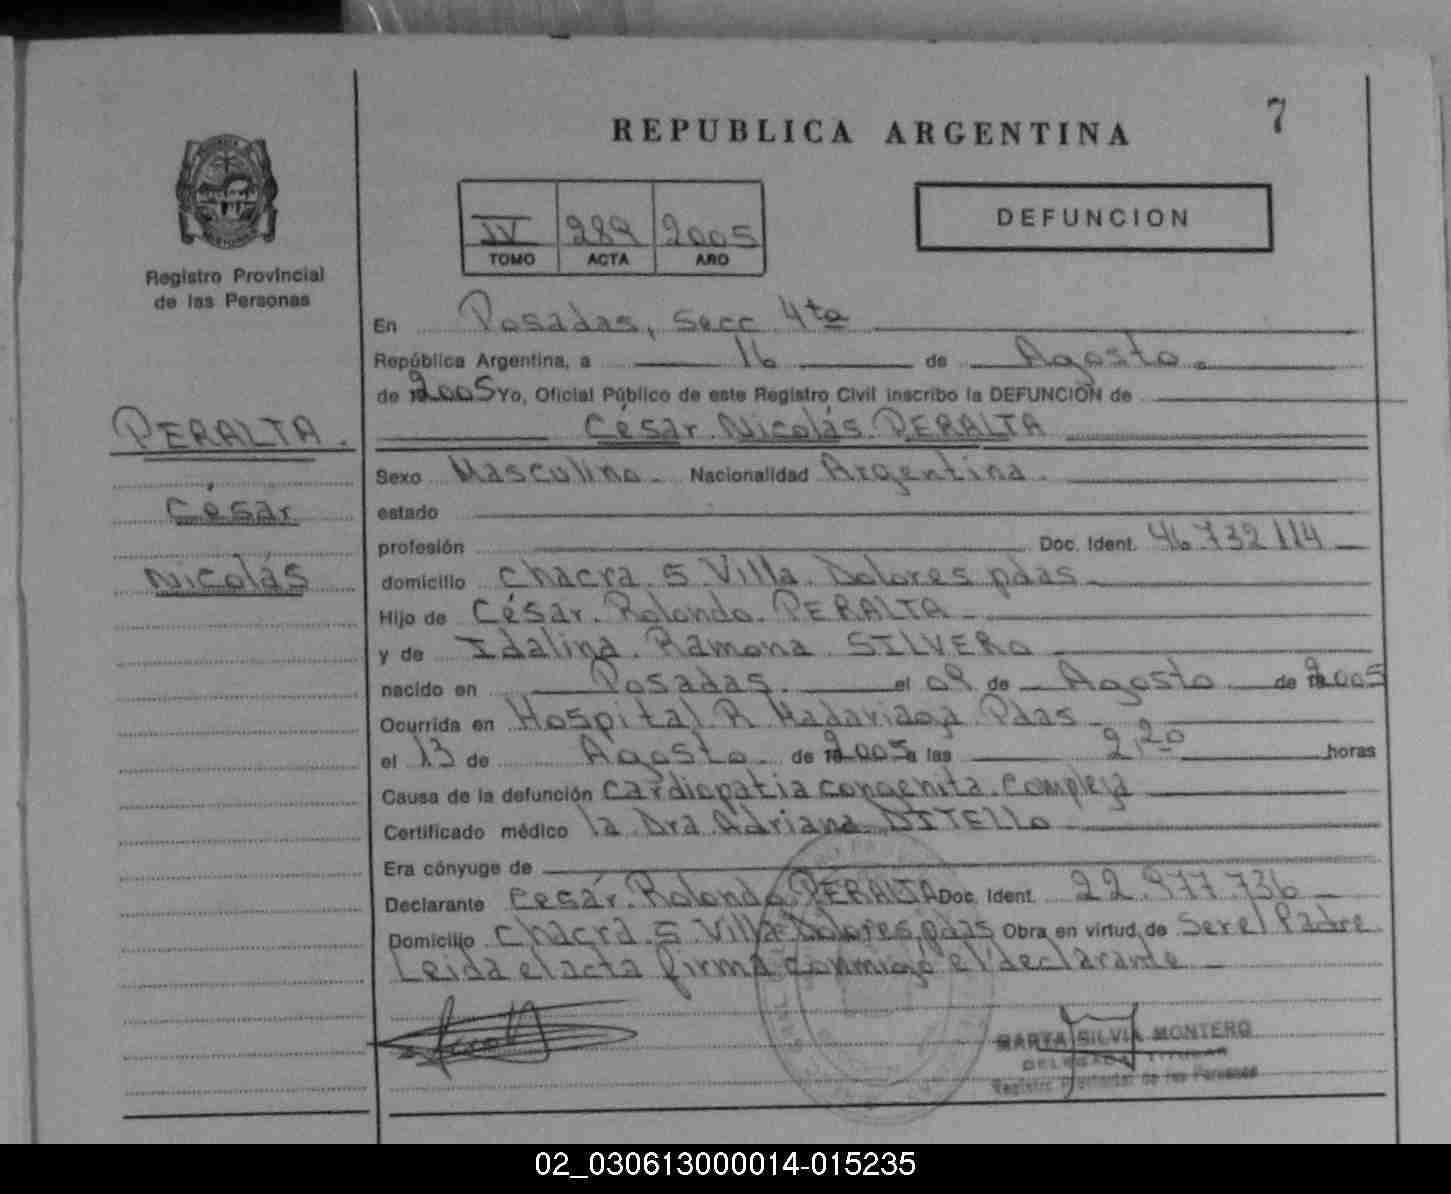 7
REPUBLICA ARGENTINA
DEFUNCION
IV 289 2005
TOMO ACTA AÑO
Registro Provincial
de las Personas
PERALTA.
César
Nicolás
En Posadas, Secc 4ta
República Argentina, a 16 de Agosto.
de 2005 Yo, Oficial Público de este Registro Civil inscribo la DEFUNCION de
César Nicolás PERALTA
Sexo Masculino. Nacionalidad Argentina.
estado
profesión Doc. Ident. 46.732.114
domicilio Chacra 5 Villa Dolores pdas
Hijo de César Rolondo PERALTA
y de Idalina Ramona SILVERO
nacido en Posadas. el 09 de Agosto de 2005
Ocurrida en Hospital R Madariaga Pdas
el 13 de Agosto. de 2005 a las 2,20 horas
Causa de la defunción cardiopatia congenita compleja
Certificado médico la Dra Adriana DITELLO
Era cónyuge de
Declarante César Rolondo PERALTA Doc. Ident. 22.977.736
Domicilio Chacra 5 Villa Dolores pdas Obra en virtud de Ser el Padre
Leida el acta firma conmigo el declarante
MARTA SILVIA MONTERO
DELEGADA TITULAR
Registro Provincial de las Personas
02_030613000014-015235